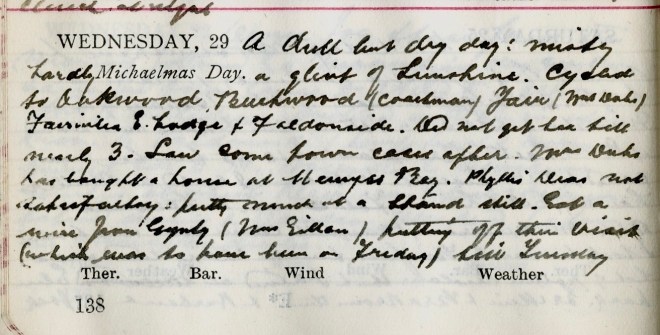 WEDNESDAY, 29 A dull but dry day: misty
hardly Michaelmas Day. a glint of Sunshine. Cycled
to Oakwood, Beechwood (Coachman) Yair (Mrs Duhs)
E. Lodge & Faldonside. Did not get back till
nearly 3. Saw some town cases after. Mrs Duhs
has bought a house at Bay. Phyllis Deas not
satisfactory: pretty much at a stand still. Got a
wire from (Mrs Gillan) putting off their visit
(which was to have been on Friday) till Tuesday
Ther. Bar. Wind Weather
138